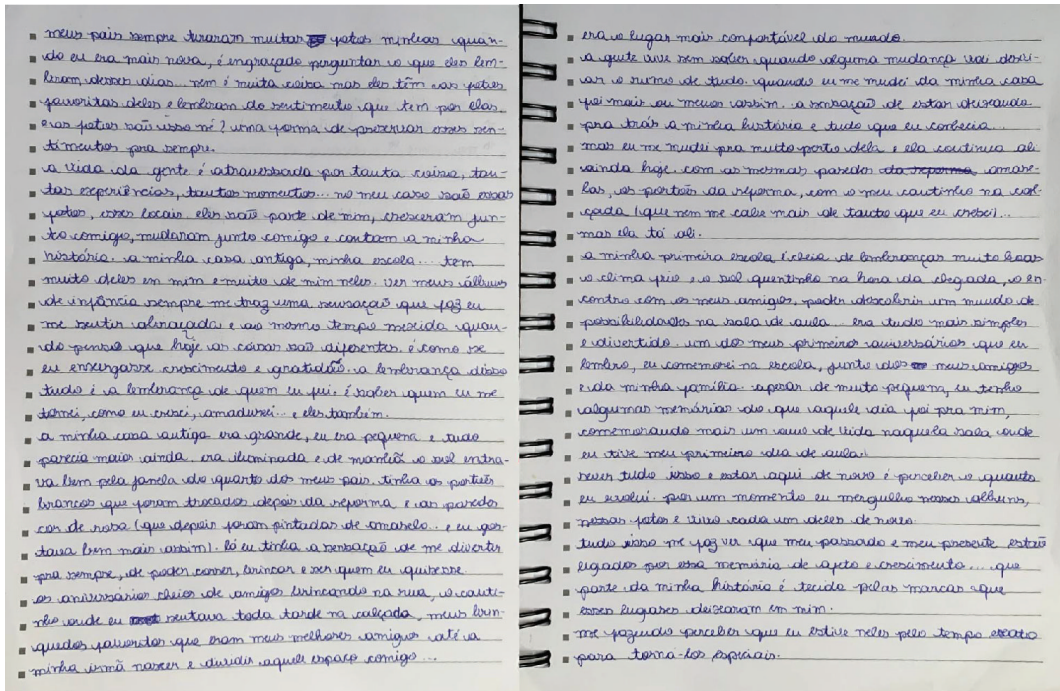 meus pais sempre tiraram muitas fotos minhas quan-
do eu era mais nova, é engraçado perguntar o que eles lem-
bram desses dias... nem é muita coisa mas eles têm as fotos
favoritas deles e lembram do sentimento que tem por elas.
e as fotos são isso né? uma forma de preservar esses sen-
timentos pra sempre.
a vida da gente é atravessada por tanta coisa, tan-
tas experiências, tantos momentos... no meu caso são essas
fotos, esses locais. eles são parte de mim, cresceram jun-
to comigo, mudaram junto comigo e contam a minha
história. a minha casa antiga, minha escola... tem
muito deles em mim e muito de mim neles. ver meus álbuns
de infância sempre me traz uma sensação que faz eu
me sentir abraçada e ao mesmo tempo mexida quan-
do penso que hoje as coisas são diferentes. é como se
eu enxergasse crescimento e gratidão. a lembrança disso
tudo é a lembrança de quem eu fui. é saber quem eu me
tornei, como eu cresci, amadureci... e eles também.
a minha casa antiga era grande, eu era pequena e tudo
parecia maior ainda. era iluminada e de manhã o sol entra-
va bem pela janela do quarto dos meus pais. tinha os portões
brancos que foram trocados depois da reforma, e as paredes
cor de rosa (que depois foram pintadas de amarelo... e eu gos-
tava bem mais assim). lá eu tinha a sensação de me divertir
pra sempre, de poder correr, brincar e ser quem eu quisesse.
os aniversários cheios de amigos brincando na rua, o canti-
nho onde eu sentava toda tarde na calçada, meus brin-
quedos favoritos que eram meus melhores amigos até a
minha irmã nascer e dividir aquele espaço comigo...
era o lugar mais confortável do mundo.
a gente vive sem saber quando alguma mudança vai desvi-
ar o rumo de tudo. quando eu me mudei da minha casa
foi mais ou menos assim. a sensação de estar deixando
pra trás a minha história e tudo que eu conhecia...
mas eu me mudei pra muito perto dela e ela continua ali
ainda hoje. com as mesmas paredes da reforma, amare-
las, os portões da reforma, com o meu cantinho na cal-
çada (que nem me cabe mais de tanto que eu cresci)...
mas ela tá ali.
a minha primeira escola é cheia de lembranças muito boas
o clima frio e o sol quentinho na hora da chegada, o en-
contro com os meus amigos, poder descobrir um mundo de
possibilidades na sala de aula... era tudo mais simples
e divertido. um dos meus primeiros aniversários que eu
lembro, eu comemorei na escola, junto dos meus amigos
e da minha família. apesar de muito pequena, eu tenho
algumas memórias do que aquele dia foi pra mim,
comemorando mais um ano de vida naquela sala onde
eu tive meu primeiro dia de aula.
rever tudo isso e estar aqui de novo é perceber o quanto
eu evoluí. por um momento eu mergulho nesses álbuns,
nessas fotos e vivo cada um deles de novo.
tudo isso me faz ver que meu passado e meu presente estão
ligados por essa memória de afeto e crescimento... que
parte da minha história é tecida pelas marcas que
esses lugares deixaram em mim.
me fazendo perceber que eu estive neles pelo tempo exato
para torna-los especiais.